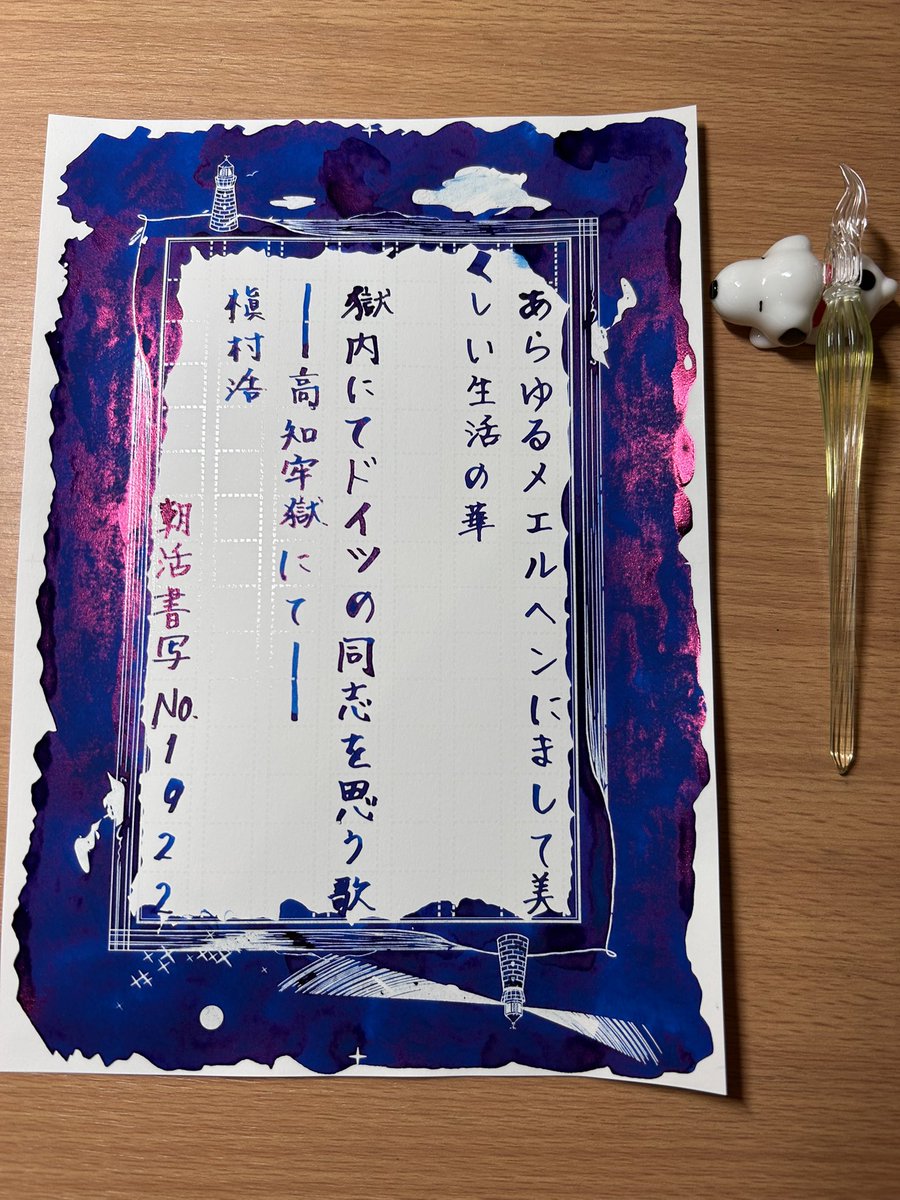 あらゆるメエルヘンにまして美
くしい生活の華
獄内にてドイツの同志を思う歌
――高知牢獄にて――
槇村浩
朝活書写 No.1922